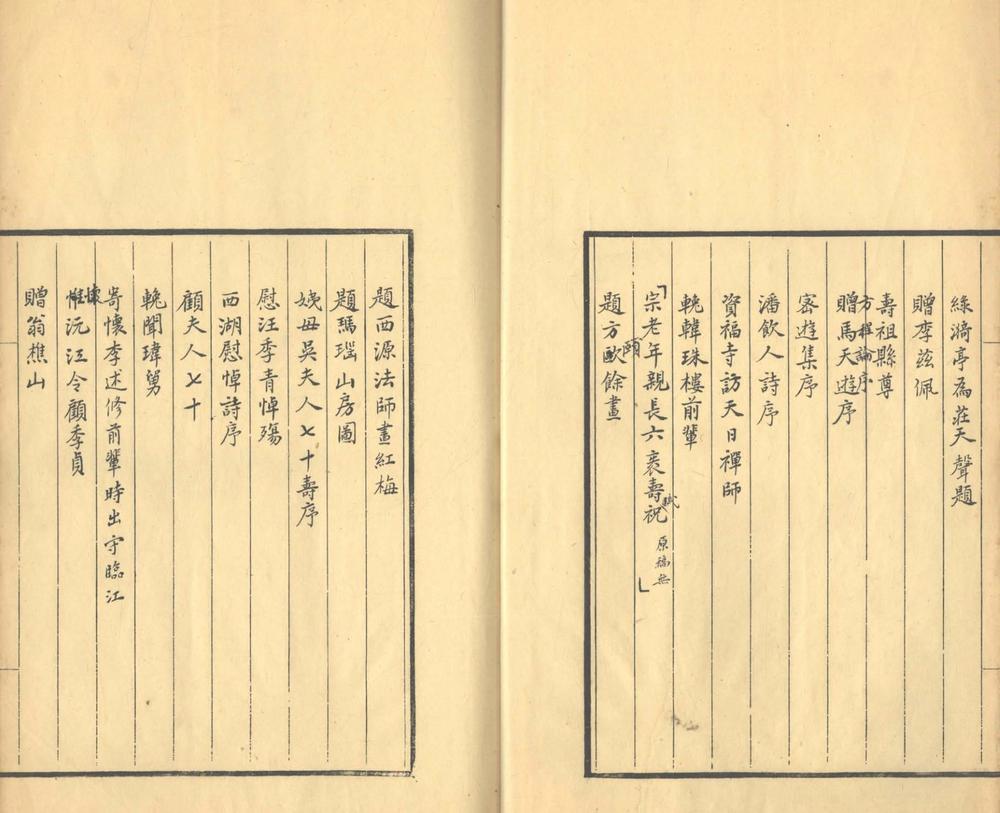 綠漪亭為莊天聲題
贈李茲佩
壽祖縣尊
方程論序
贈馬天遊序
密遊集序
潘飲人詩序
資福寺訪天日禪師
輓韓珠樓前輩
「宗老年親長六袠壽祝賦原稿無」
題方歐餘畫
題西源法師畫紅梅
題瑪瑙山房圖
姨母吳夫人七十壽序
慰汪季青悼殤
西湖慰悼詩序
顧夫人七十
輓聞瑋舅
寄懷李述修前輩時出守臨江
懷沅江令顧季貞
贈翁樵山